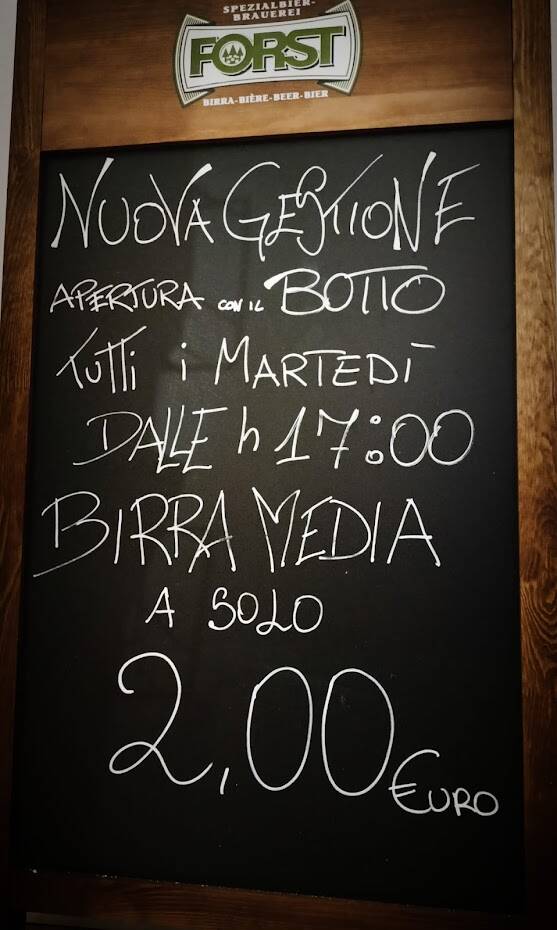 SPEZIALBIER-
BRAUEREI
FORST
BIRRA-BIÈRE-BEER-BIER
NUOVA GESTIONE
APERTURA CON IL BOTTO
TUTTI i MARTEDÌ
DALLE h 17:00
BIRRA MEDIA
A SOLO
2,00
€URO